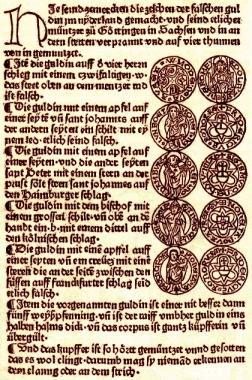 Hie seind zemercken die zeichen der falschen gul
din im niderland gemacht. vnd seind etlicher
müntzer zů Göttingen in Sachsen vnd in an
dern stetten verprannt vnd auf vier thunnen
von in gemüntzet.
¶ Itē die guldin auff 6 vier hern
schleg mit einem zwifaltigen. w.
das stet oben an dem mentzer rad
ist falsch.
¶ Die guldin mit dem apfel auf
einer seytē vñ sant johannis auff
der andern seyten ein schilt mit ey
nem leo. etlich seind falsch.
¶ Die guldin mit einem apfel auf
einer seyten. vnd die ander seyten
sant Peter mit einem stern an der
prust sölt stern sant johannes auf
den Hamburger schlag.
¶ Die guldin mit dem bischof mit
einem grossen schilt. vñ obē an dē
handt ein. b. mit einem dittel auff
den kölnischen schlag.
¶ Die guldin mit eine apffel auff
einer seyten vñ ein creutz mit einē
streich die an der seitē zwischen den
füssen auff franckfurter schlag seid
etlich falsch.
¶ Item die vorgenannten guldin ist einer nit besser dann
fünf weyßpfenning. vñ ist der raiff vmbher guld in eins
halben halms dick. vñ das corpus ist gantz kupfferin vñ
übergült.
¶ Vnd das kupffer ist so hört gemüntzet vnnd gesotten
das es wol clingt. darumb mag sy niemād erkennen an
dem clanng oder an dem strich.